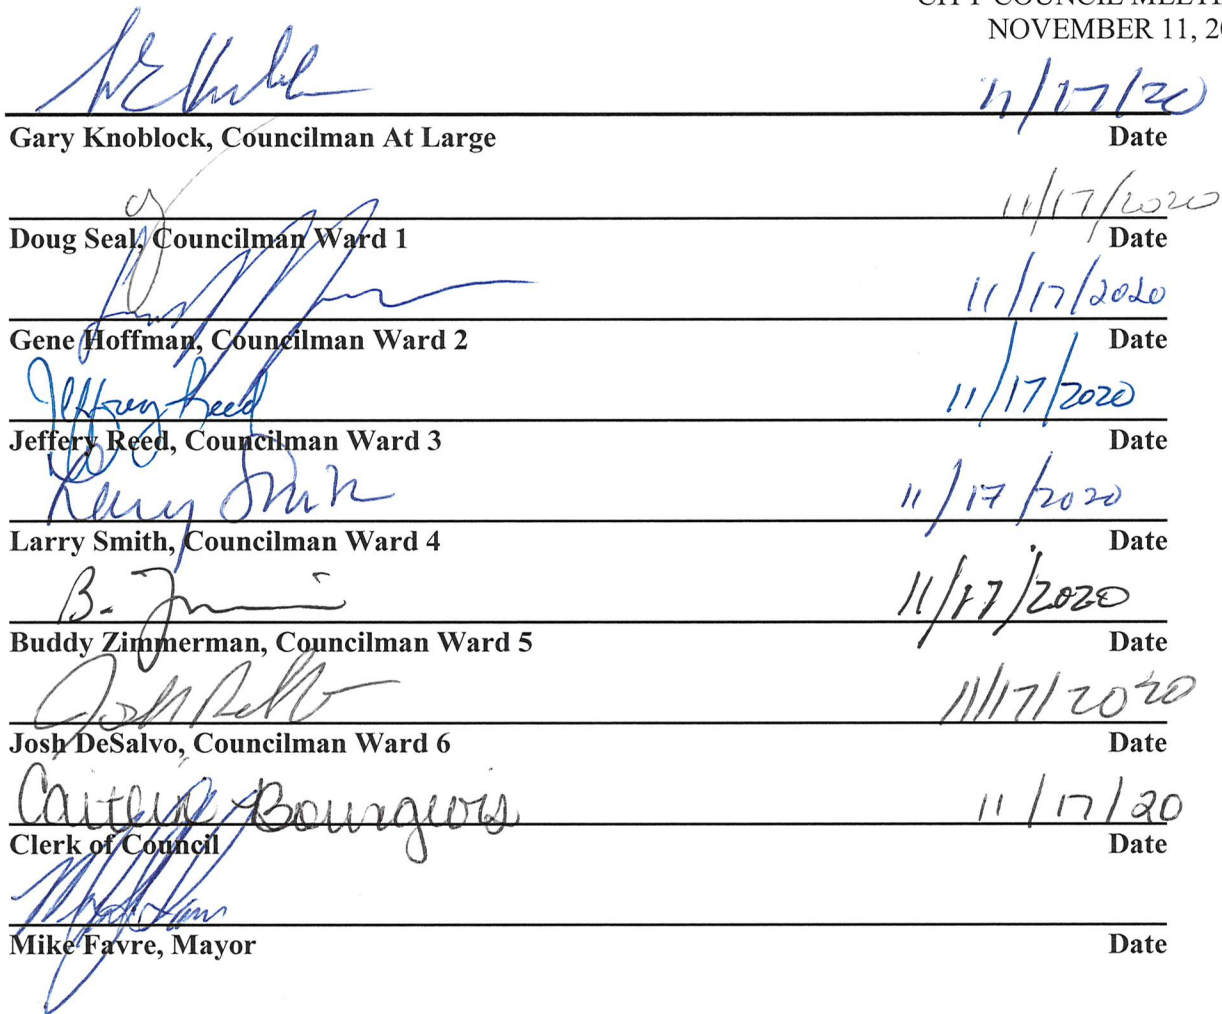 CITY COUNCIL MEETI
NOVEMBER 11, 20
11/17/20
Gary Knoblock, Councilman At Large Date
11/17/2020
Doug Seal, Councilman Ward 1 Date
11/17/2020
Gene Hoffman, Councilman Ward 2 Date
Jeffrey Reed 11/17/2020
Jeffery Reed, Councilman Ward 3 Date
Larry Smith 11/17/2020
Larry Smith, Councilman Ward 4 Date
B. 11/17/2020
Buddy Zimmerman, Councilman Ward 5 Date
Josh 11/17/2020
Josh DeSalvo, Councilman Ward 6 Date
Caitlin Bourgeois 11/17/20
Clerk of Council Date
Mike Favre, Mayor Date